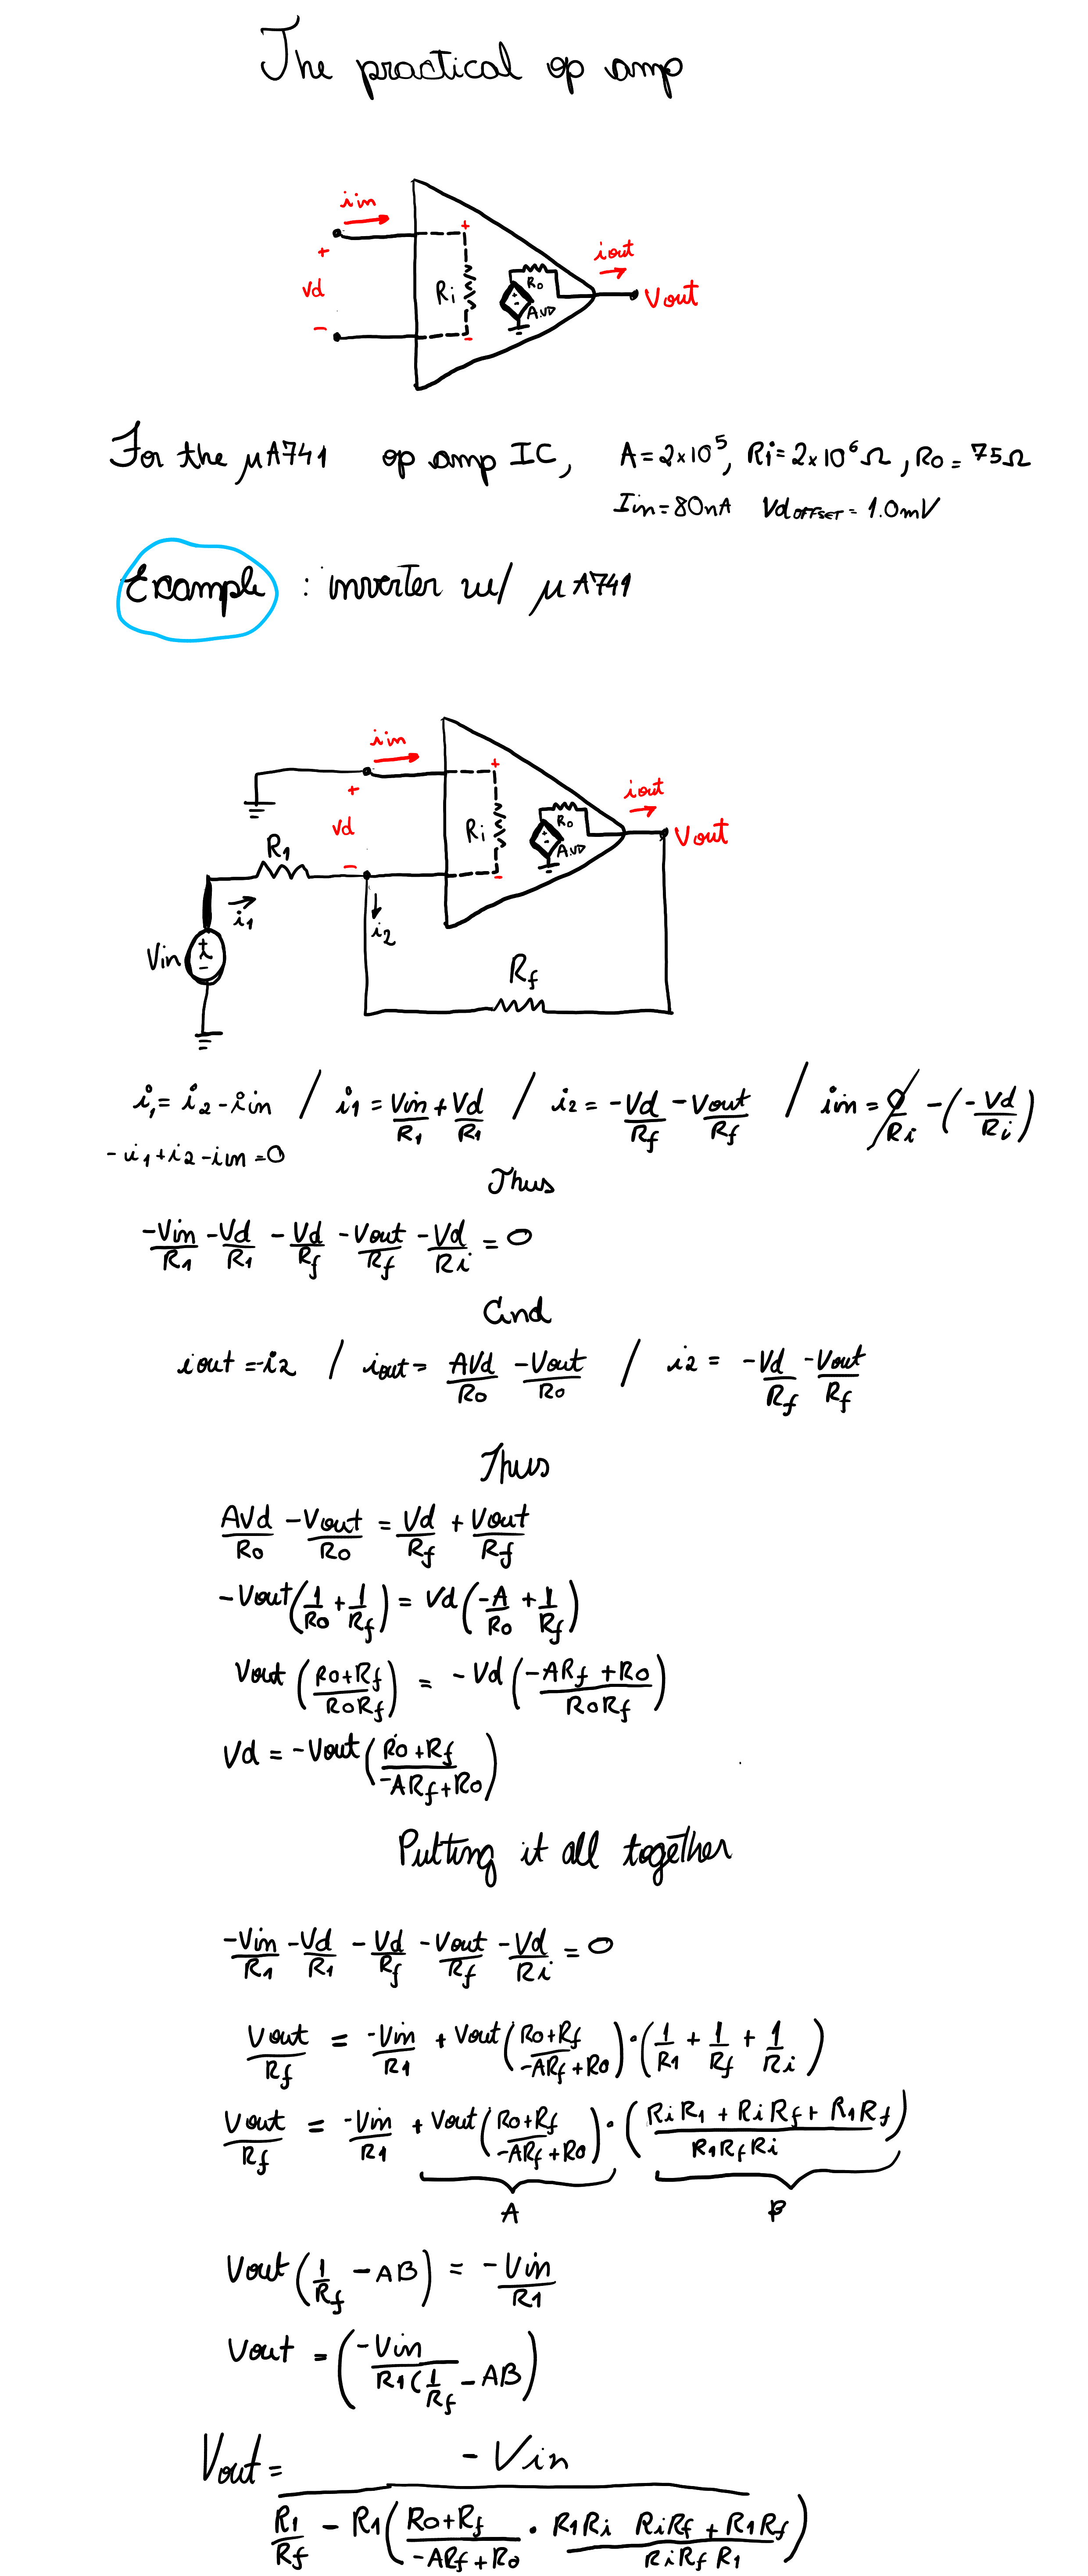 The practical op amp
iin
+
vd
-
+
Ri
-
Ro
+
-
A.VD
iout
Vout
For the µA741 op amp IC, A = 2×10^5, Ri = 2×10^6 Ω, Ro = 75Ω
Iin = 80nA Vd OFFSET = 1.0mV
Example : inverter w/ µA741
iin
+
vd
-
+
Ri
-
Ro
+
-
A.VD
iout
Vout
R1
i1
i2
Vin
+
-
Rf
i1 = i2 - iin / i1 = Vin/R1 + Vd/R1 / i2 = -Vd/Rf - Vout/Rf / iin = 0/Ri - (-Vd/Ri)
- i1 + i2 - iin = 0
Thus
-Vin/R1 - Vd/R1 - Vd/Rf - Vout/Rf - Vd/Ri = 0
And
iout = -i2 / iout = AVd/Ro - Vout/Ro / i2 = -Vd/Rf - Vout/Rf
Thus
AVd/Ro - Vout/Ro = Vd/Rf + Vout/Rf
-Vout(1/Ro + 1/Rf) = Vd(-A/Ro + 1/Rf)
Vout((Ro+Rf)/(RoRf)) = -Vd((-ARf + Ro)/(RoRf))
Vd = -Vout((Ro+Rf)/(-ARf+Ro))
Putting it all together
-Vin/R1 - Vd/R1 - Vd/Rf - Vout/Rf - Vd/Ri = 0
Vout/Rf = -Vin/R1 + Vout((Ro+Rf)/(-ARf+Ro)) · (1/R1 + 1/Rf + 1/Ri)
Vout/Rf = -Vin/R1 + Vout((Ro+Rf)/(-ARf+Ro)) · ((RiR1 + RiRf + R1Rf)/(R1RfRi))
A B
Vout(1/Rf - AB) = -Vin/R1
Vout = (-Vin/(R1(1/Rf - AB))
Vout = -Vin/(R1/Rf - R1((Ro+Rf)/(-ARf+Ro) · (R1Ri RiRf + R1Rf)/(RiRfR1)))